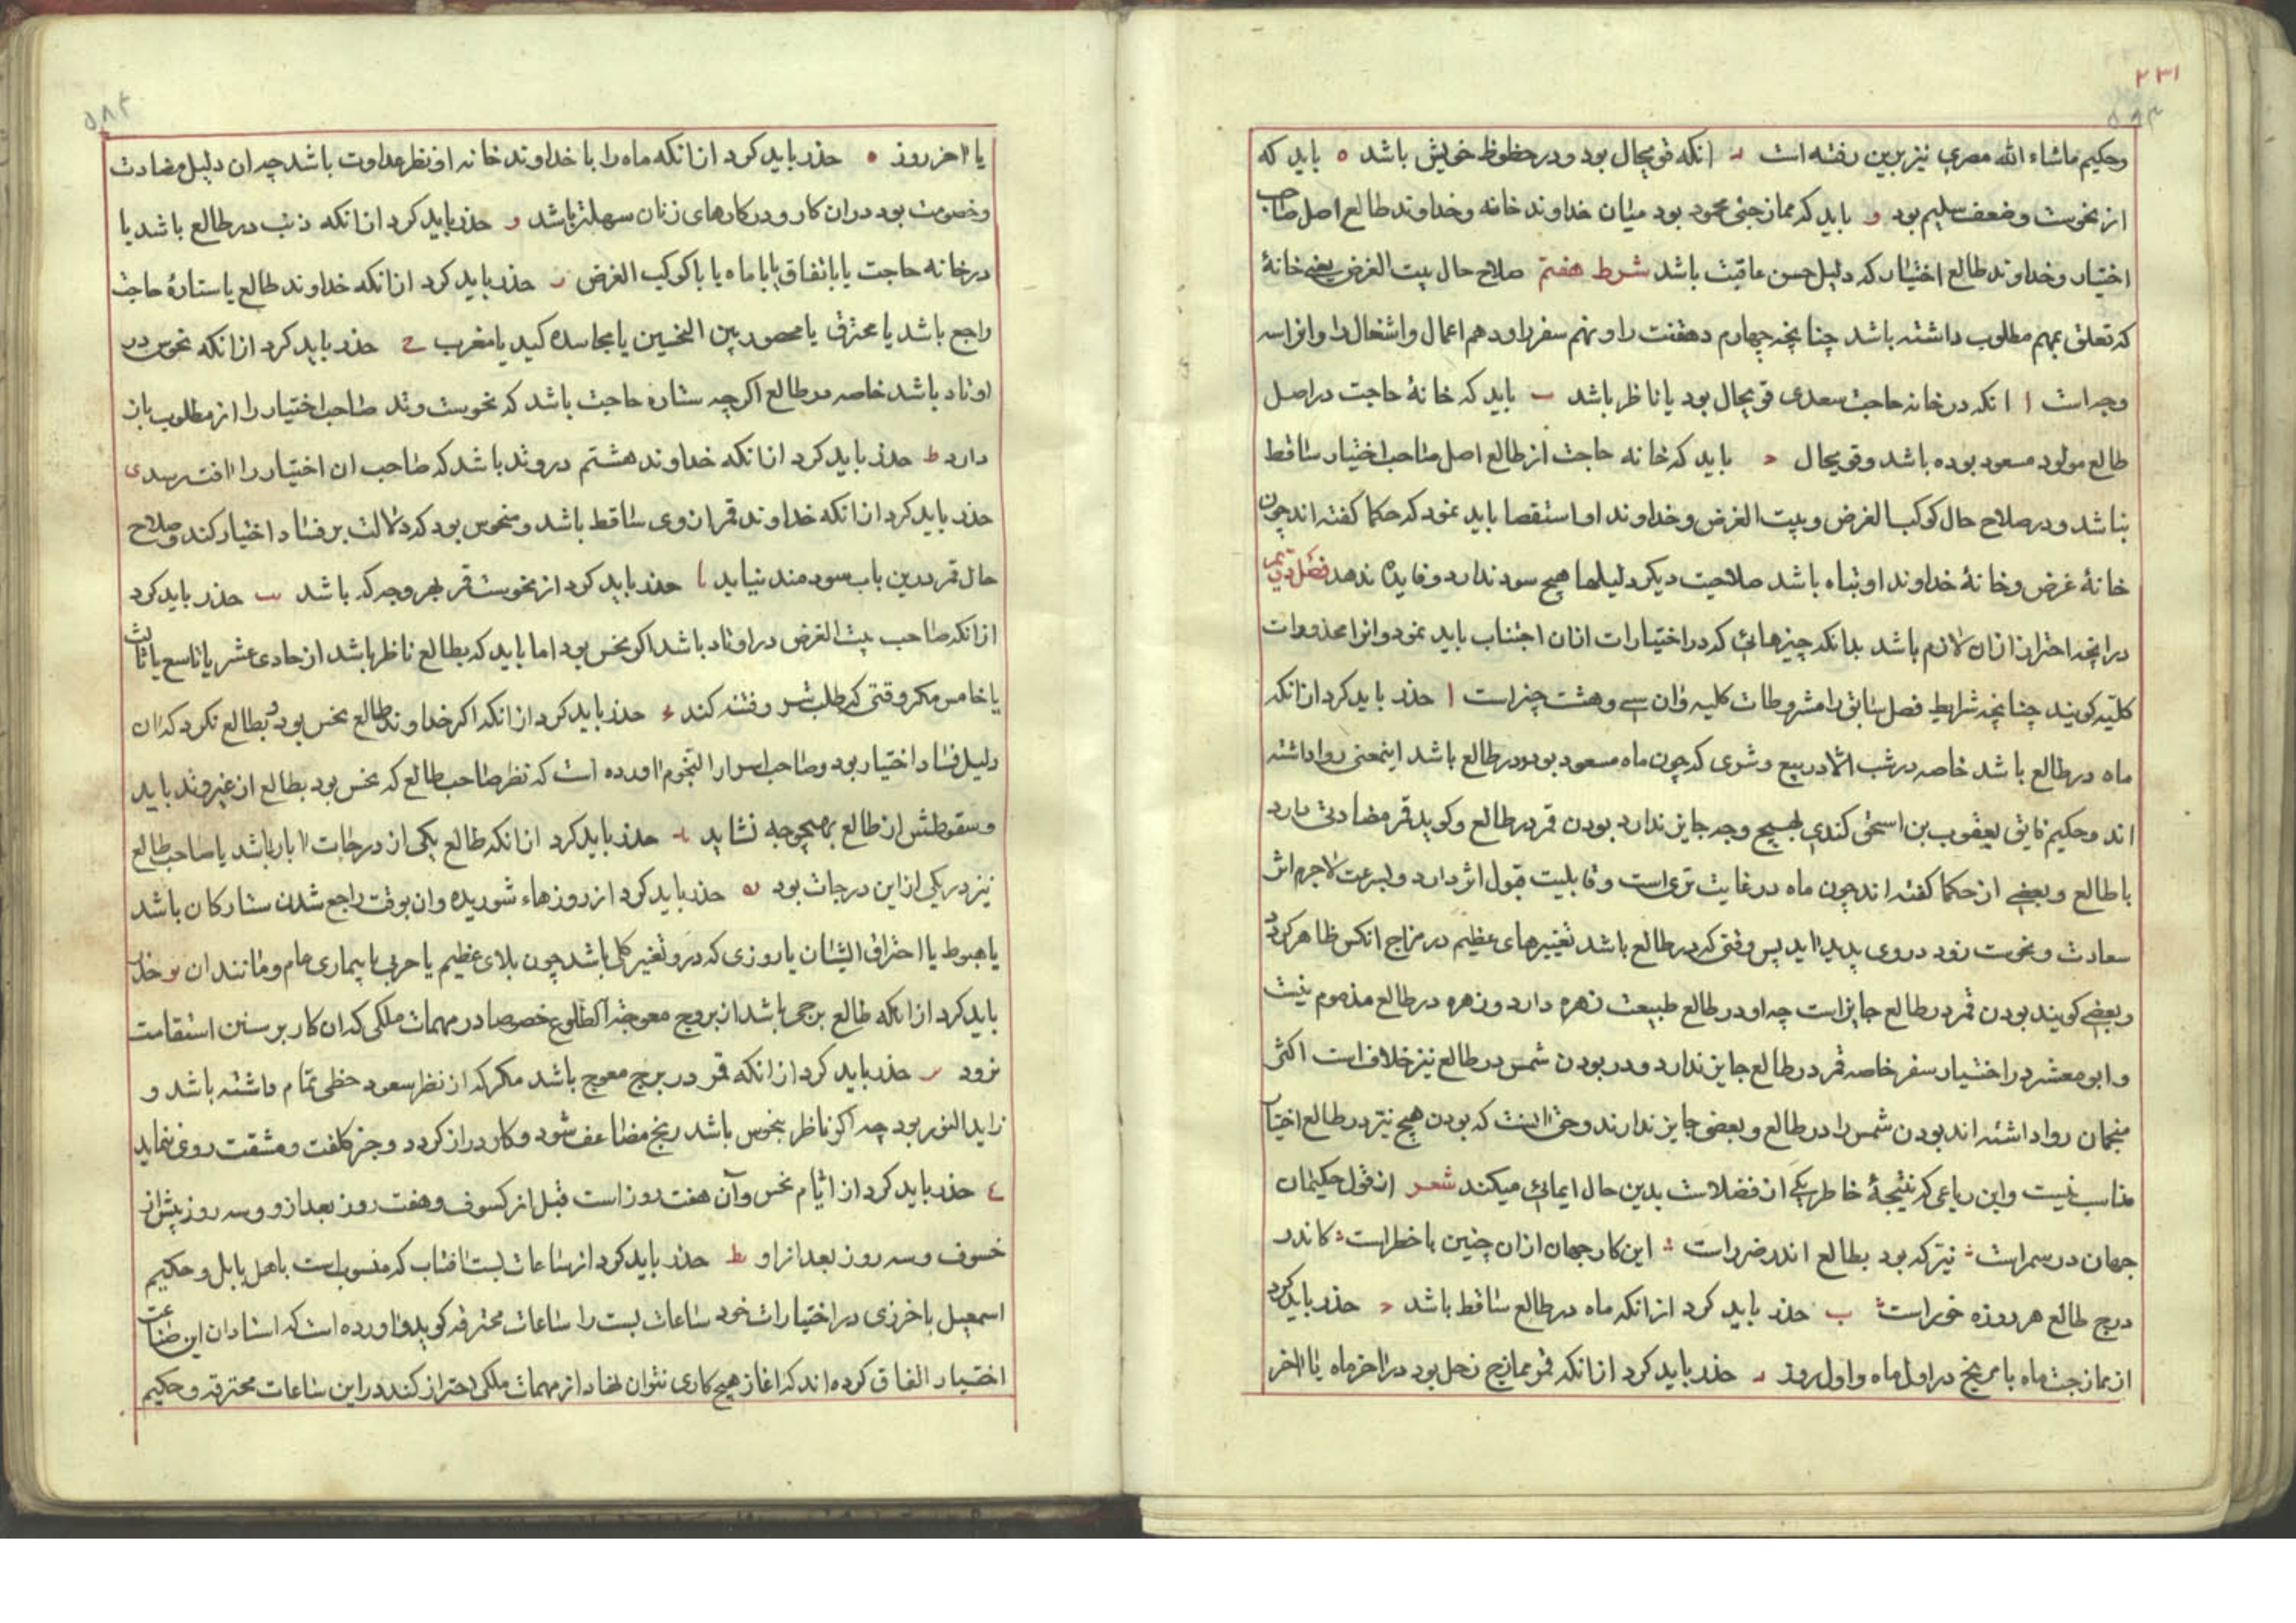 ۲۳۱
وحکیم ماشاء الله مصری نیز برین رفته است د انکه قویحال بود و در حظوظ خویش باشد ه باید که
از نحوست وضعف سلیم بود و باید که ممازجتی محمود بود میان خداوند خانه وخداوند طالع اصل صاحب
اختیار وخداوند طالع اختیار که دلیل حسن عاقبت باشد شرط هفتم صلاح حال بیت الغرض یعنی خانهٔ
که تعلق بمهم مطلوب داشته باشد چنانچه چهارم دهقنت را ونهم سفر را ودهم اعمال واشغال را وانرا سه
وجه است ا انکه در خانه حاجت سعدی قویحال بود یا ناظر باشد ب باید که خانهٔ حاجت در اصل
طالع مولود مسعود بوده باشد وقویحال ج باید که خانه حاجت از طالع اصل صاحب اختیار ساقط
نباشد ودر صلاح حال کوکب الغرض وبیت الغرض وخداوند او استقصا باید نمود که حکما گفته اند چون
خانهٔ غرض وخانهٔ خداوند او تباه باشد صلاحیت دیکر دلیلها هیچ سود ندارد وفایده ندهد فصل
در انچه احتراز ازان لازم باشد بدانکه چیزهائی که در اختیارات ازان اجتناب باید نمود وانرا محذورات
کلیه کویند چنانچه شرایط فصل سابق را مشروطات کلیه وان سی وهشت چیز است ا حذر باید کرد ازانکه
ماه در طالع باشد خاصه در شب الا در بیع وشری که چون ماه مسعود بود ودر طالع باشد اینمعنی روا داشته
اند وحکیم فایق یعقوب بن اسحق کندی بهیچ وجه جایز ندارد بودن قمر در طالع وکوید قمر مضادتی دارد
با طالع وبعضی از حکما کفته اند چون ماه در غایت تری است وقابلیت قبول اثر دارد وبسرعت لاجرم اثر
سعادت ونحوست زود در وی پدید اید پس وقتی که در طالع باشد تغییرهای عظیم در مزاج انکس ظاهر کردد
وبعضی کویند بودن قمر در طالع جایز است چه او در طالع طبیعت زهره دارد وزهره در طالع مذموم نیست
وابومعشر در اختیار سفر خاصه قمر در طالع جایز ندارد ودر بودن شمس در طالع نیز خلاف است اکثر
منجمان روا داشته اند بودن شمس را در طالع وبعضی جایز ندارند وحق انست که بودن هیچ نیر در طالع اختیار
مناسب نیست واین رباعی که نتیجهٔ خاطر یکی از فضلاست بدین حال ایمائی میکند شعر از قول حکیمان
جهان در سمر است نیر که بود بطالع اندر ضرر است این کار جهان ازان چنین با خطر است کاندر
درج طالع هر روزه خور است ب حذر باید کرد ازانکه ماه در طالع ساقط باشد ج حذر باید کرد
از ممازجت ماه با مریخ در اول ماه واول روز د حذر باید کرد ازانکه قمر ممازج زحل بود در اخر ماه یا اخر
۵۸۴
یا اخر روز ه حذر باید کرد ازانکه ماه را با خداوند خانه او نظر عداوت باشد چه ان دلیل مضادت
وخصومت بود دران کار ودر کارهای زنان سهلتر باشد و حذر باید کرد ازانکه ذنب در طالع باشد یا
در خانه حاجت یا باتفاق یا با ماه یا با کوکب الغرض ز حذر باید کرد ازانکه خداوند طالع یا ستارهٔ حاجت
راجع باشد یا محترق یا محصور بین النحسین یا مجاسده کید یا مغرب ح حذر باید کرد ازانکه نحوس در
اوتاد باشد خاصه در طالع اکرچه ستاره حاجت باشد که نحوست وتد صاحب اختیار را از مطلوب باز
دارد ط حذر باید کرد ازانکه خداوند هشتم در وتد باشد که صاحب ان اختیار را افت رسد ی
حذر باید کرد ازانکه خداوند قمر از وی ساقط باشد ومنحوس بود که دلالت بر فساد اختیار کند وصلاح
حال قمر درین باب سودمند نیاید یا حذر باید کرد از نحوست قمر بهر وجه که باشد یب حذر باید کرد
ازانکه صاحب بیت الغرض در اوتاد باشد اکر نحس بود اما باید که بطالع ناظر باشد از حادی عشر یا تاسع یا ثالث
یا خامس مکر وقتی که طلب شر وفتنه کند حذر باید کرد ازانکه اکر خداوند طالع نحس بود بطالع نکرد که ان
دلیل فساد اختیار بود وصاحب اسرار النجوم اورده است که نظر صاحب طالع که نحس بود بطالع از غیر وتد باید
وسقوطش از طالع بهیچوجه نشاید ید حذر باید کرد ازانکه طالع یکی از درجات ابار باشد یا صاحب طالع
نیز در یکی ازاین درجات بود یه حذر باید کرد از روزهاء شوریده وان بوقت راجع شدن ستارکان باشد
یا هبوط یا احتراق ایشان یا روزی که درو تغیر کلی باشد چون بلای عظیم یا حربی یا بیماری عام ومانند ان یو حذر
باید کرد ازانکه طالع برجی باشد از بروج معوجة الطلوع خصوصا در مهمات ملکی که ان کار بر سنن استقامت
نرود یز حذر باید کرد ازانکه قمر در برج معوج باشد مکر که از نظر سعود حظی تمام داشته باشد و
زاید النور بود چه اکر ناظر بنحوس باشد رنج مضاعف شود وکار دراز کردد وجز کلفت ومشقت روی ننماید
یح حذر باید کرد از ایام نحس وآن هفت روز است قبل از کسوف وهفت روز بعد ازو وسه روز پیش از
خسوف وسه روز بعد از او یط حذر باید کرد از ساعات بست افتاب که منسوب است باهل بابل وحکیم
اسمعیل باخرزی در اختیارات خود ساعات بست را ساعات محترقه کوید واورده است که استادان این صناعت
اختیار اتفاق کرده اند که اغاز هیچ کاری نتوان نهاد از مهمات ملکی احتراز کنند دراین ساعات محترقه وحکیم